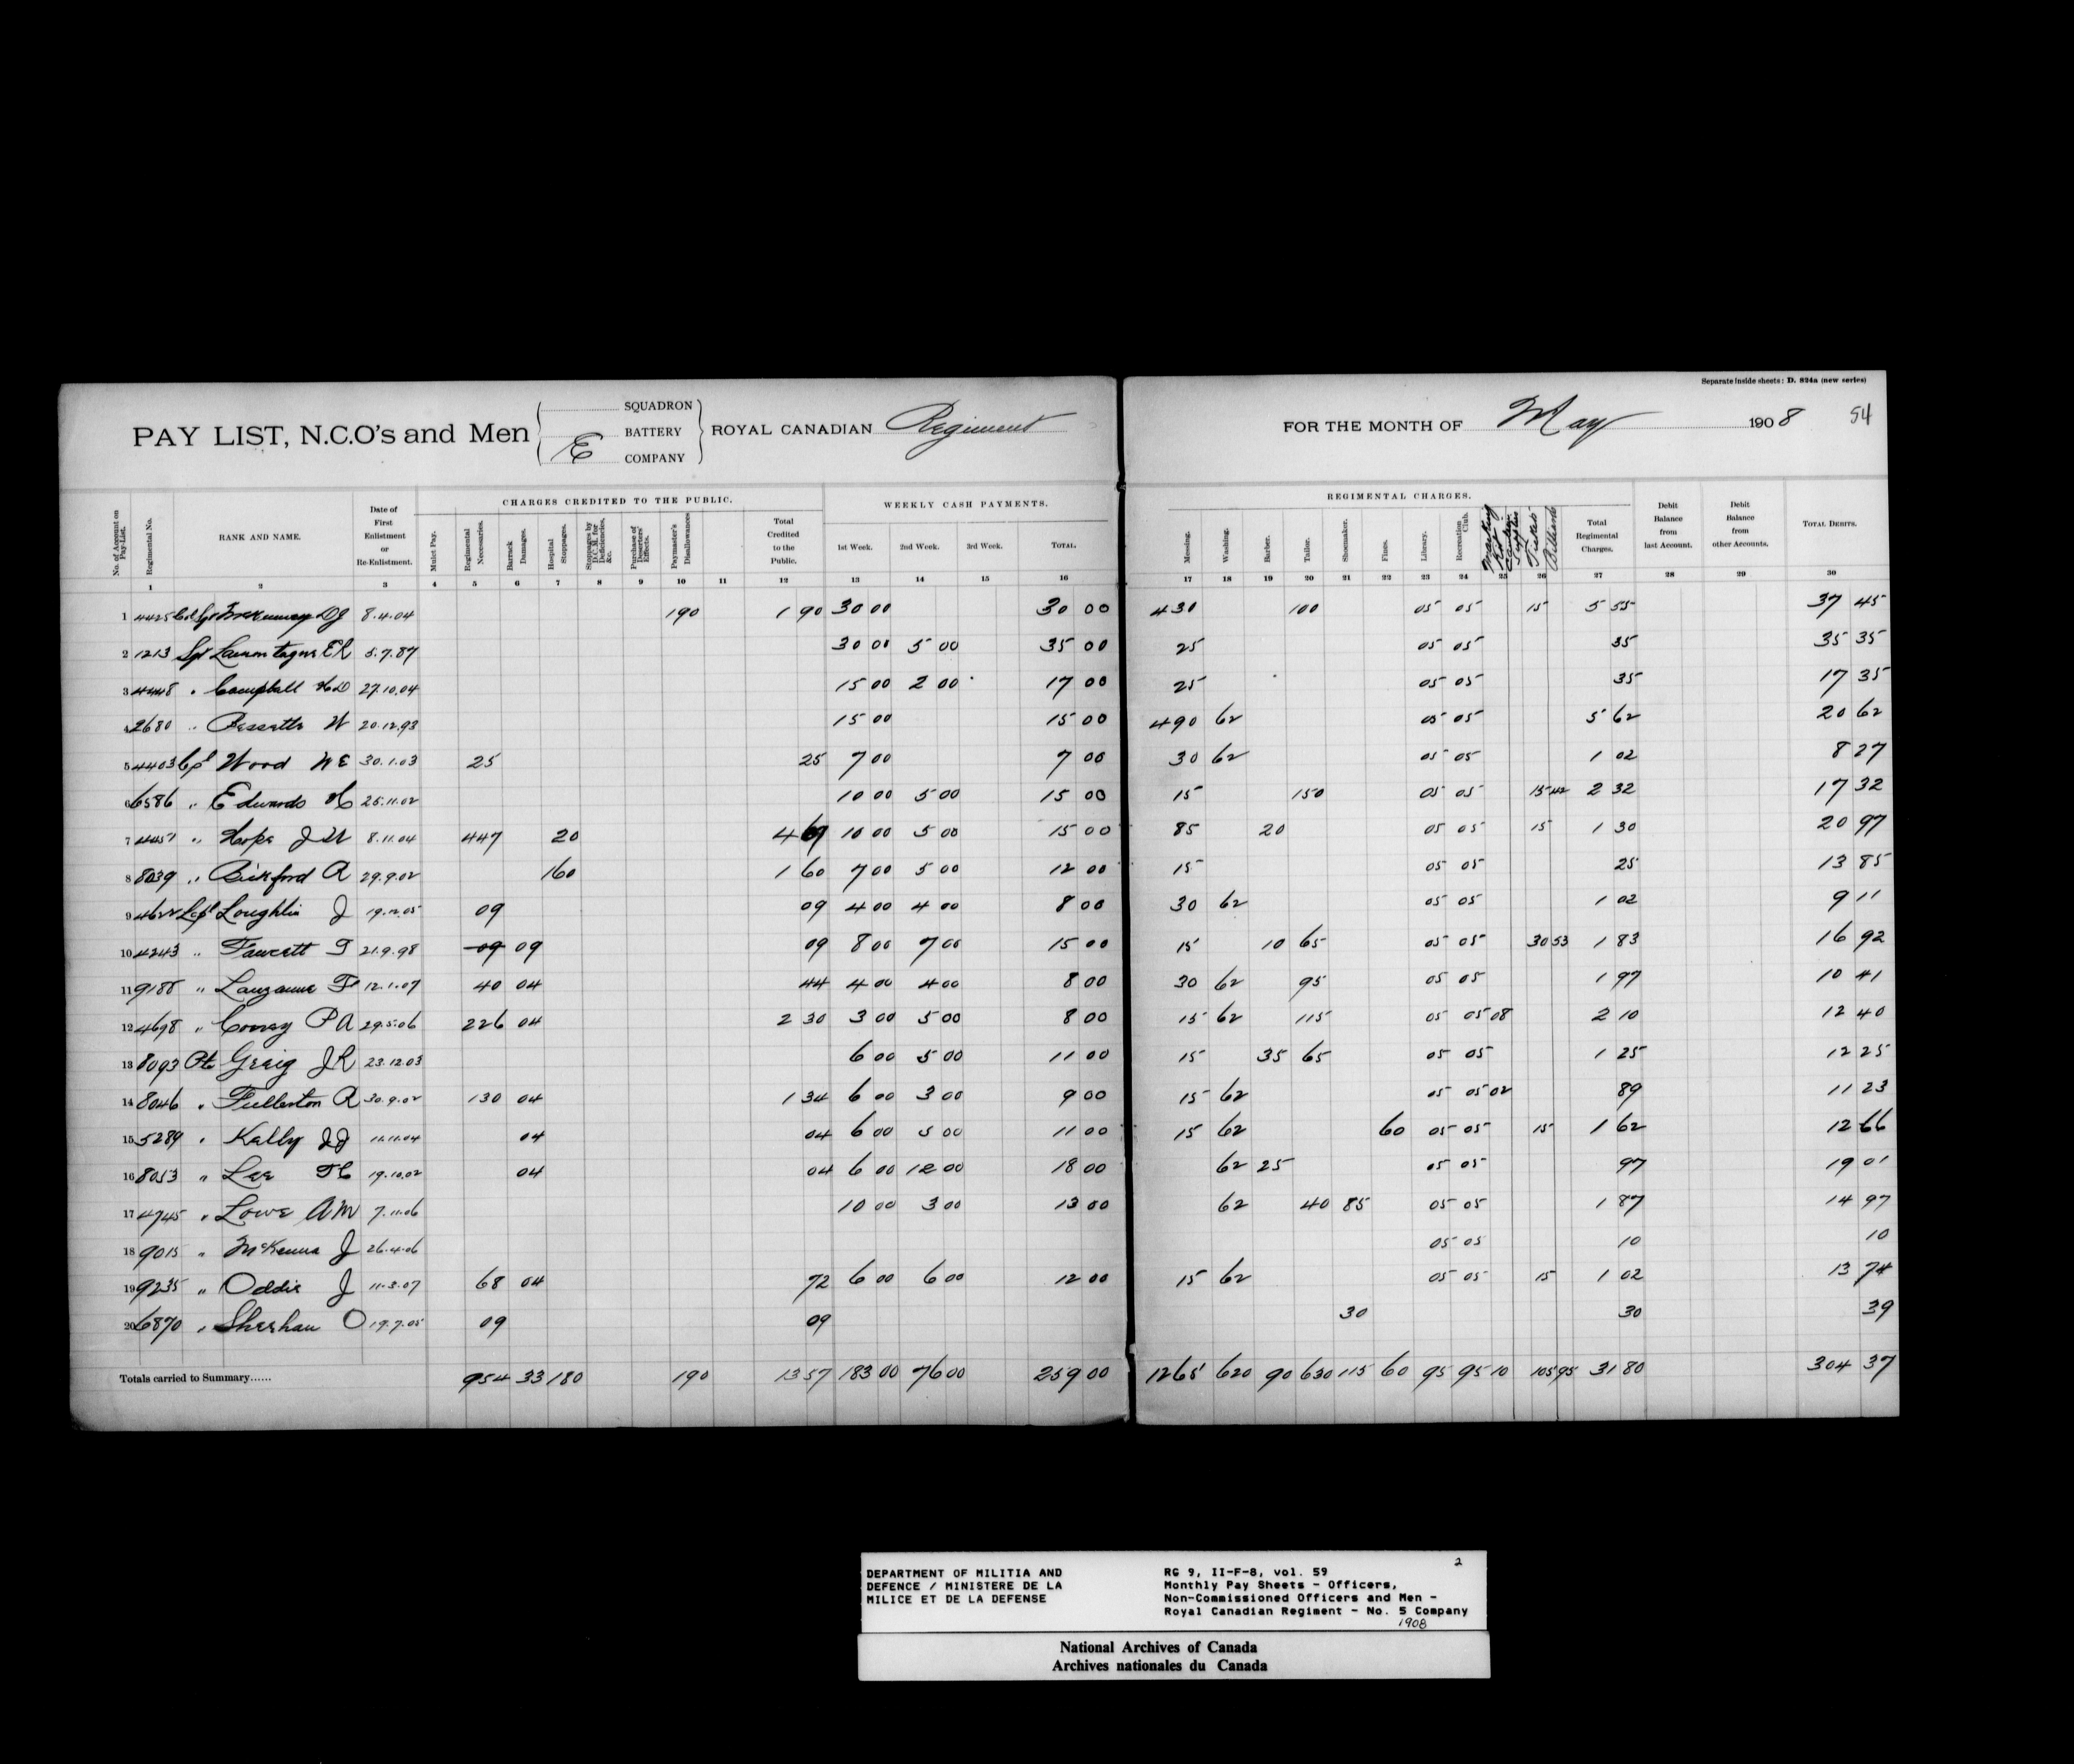 Separate inside sheets: D. 824a (new series)
PAY LIST, N.C.O's and Men SQUADRON BATTERY E COMPANY ROYAL CANADIAN Regiment FOR THE MONTH OF May 1908 54
CHARGES CREDITED TO THE PUBLIC. WEEKLY CASH PAYMENTS. REGIMENTAL CHARGES.
No. of Account on Pay-List. Regimental No. RANK AND NAME. Date of First Enlistment or Re-Enlistment. Mulct Pay. Regimental Necessaries. Barrack Damages. Hospital Stoppages. Stoppages by D.C.M. for Deficiencies, &c. Purchase of Deserters' Effects. Paymaster's Disallowances Total Credited to the Public. 1st Week. 2nd Week. 3rd Week. TOTAL. Messing. Washing. Barber. Tailor. Shoemaker. Fines. Library. Recreation Club. Marking Kit Tickets Billiards Total Regimental Charges. Debit Balance from last Account. Debit Balance from other Accounts. TOTAL DEBITS.
1 2 3 4 5 6 7 8 9 10 11 12 13 14 15 16 17 18 19 20 21 22 23 24 25 26 27 28 29 30
1 4425 Col Sgt DJ 8.4.04 190 1 90 30 00 30 00 430 100 05 05 15 5 55 37 45
2 1213 Sgt 5.7.87 30 00 5 00 35 00 25 05 05 35 35 35
3 4448 " Campbell 27.10.04 15 00 2 00 17 00 25 05 05 35 17 35
4 2680 " Bessette W 20.12.93 15 00 15 00 490 62 05 05 5 62 20 62
5 4403 Cpl Wood W E 30.1.03 25 25 7 00 7 00 30 62 05 05 1 02 8 27
6 6586 " Edwards 25.11.02 10 00 5 00 15 00 15 150 05 05 15 42 2 32 17 32
7 " Hope J W 8.11.04 447 20 4 67 10 00 5 00 15 00 85 20 05 05 15 1 30 20 97
8 8039 " Bickford A 29.9.02 160 1 60 7 00 5 00 12 00 15 05 05 25 13 85
9 4622 L Cpl Loughlin J 19.12.05 09 09 4 00 4 00 8 00 30 62 05 05 1 02 9 11
10 4243 " Fawcett T 21.9.98 09 09 09 8 00 7 00 15 00 15 10 65 05 05 30 53 1 83 16 92
11 9188 " Lauzanne F 12.1.07 40 04 44 4 00 4 00 8 00 30 62 95 05 05 1 97 10 41
12 4698 " P A 29.5.06 226 04 2 30 3 00 5 00 8 00 15 62 115 05 05 08 2 10 12 40
13 8093 Pte Greig J R 23.12.03 6 00 5 00 11 00 15 35 65 05 05 1 25 12 25
14 8046 " Fullerton A 30.9.02 130 04 1 34 6 00 3 00 9 00 15 62 05 05 02 89 11 23
15 5289 " Kelly J J 11.11.04 04 04 6 00 5 00 11 00 15 62 60 05 05 15 1 62 12 66
16 8053 " Lee 19.10.02 04 04 6 00 12 00 18 00 62 25 05 05 97 19 01
17 4745 " Lowe A M 7.11.06 10 00 3 00 13 00 62 40 85 05 05 1 87 14 97
18 9015 " McKenna J 26.4.06 05 05 10 10
19 9235 " Oddie J 11.3.07 68 04 72 6 00 6 00 12 00 15 62 05 05 15 1 02 13 74
20 6870 " Sheehan O 19.7.05 09 09 30 30 39
Totals carried to Summary...... 954 33 180 190 13 57 183 00 76 00 259 00 1265 620 90 630 115 60 95 95 10 105 95 31 80 304 37
2
DEPARTMENT OF MILITIA AND
DEFENCE / MINISTERE DE LA
MILICE ET DE LA DEFENSE
RG 9, II-F-8, vol. 59
Monthly Pay Sheets - Officers,
Non-Commissioned Officers and Men -
Royal Canadian Regiment - No. 5 Company
1908
National Archives of Canada
Archives nationales du Canada